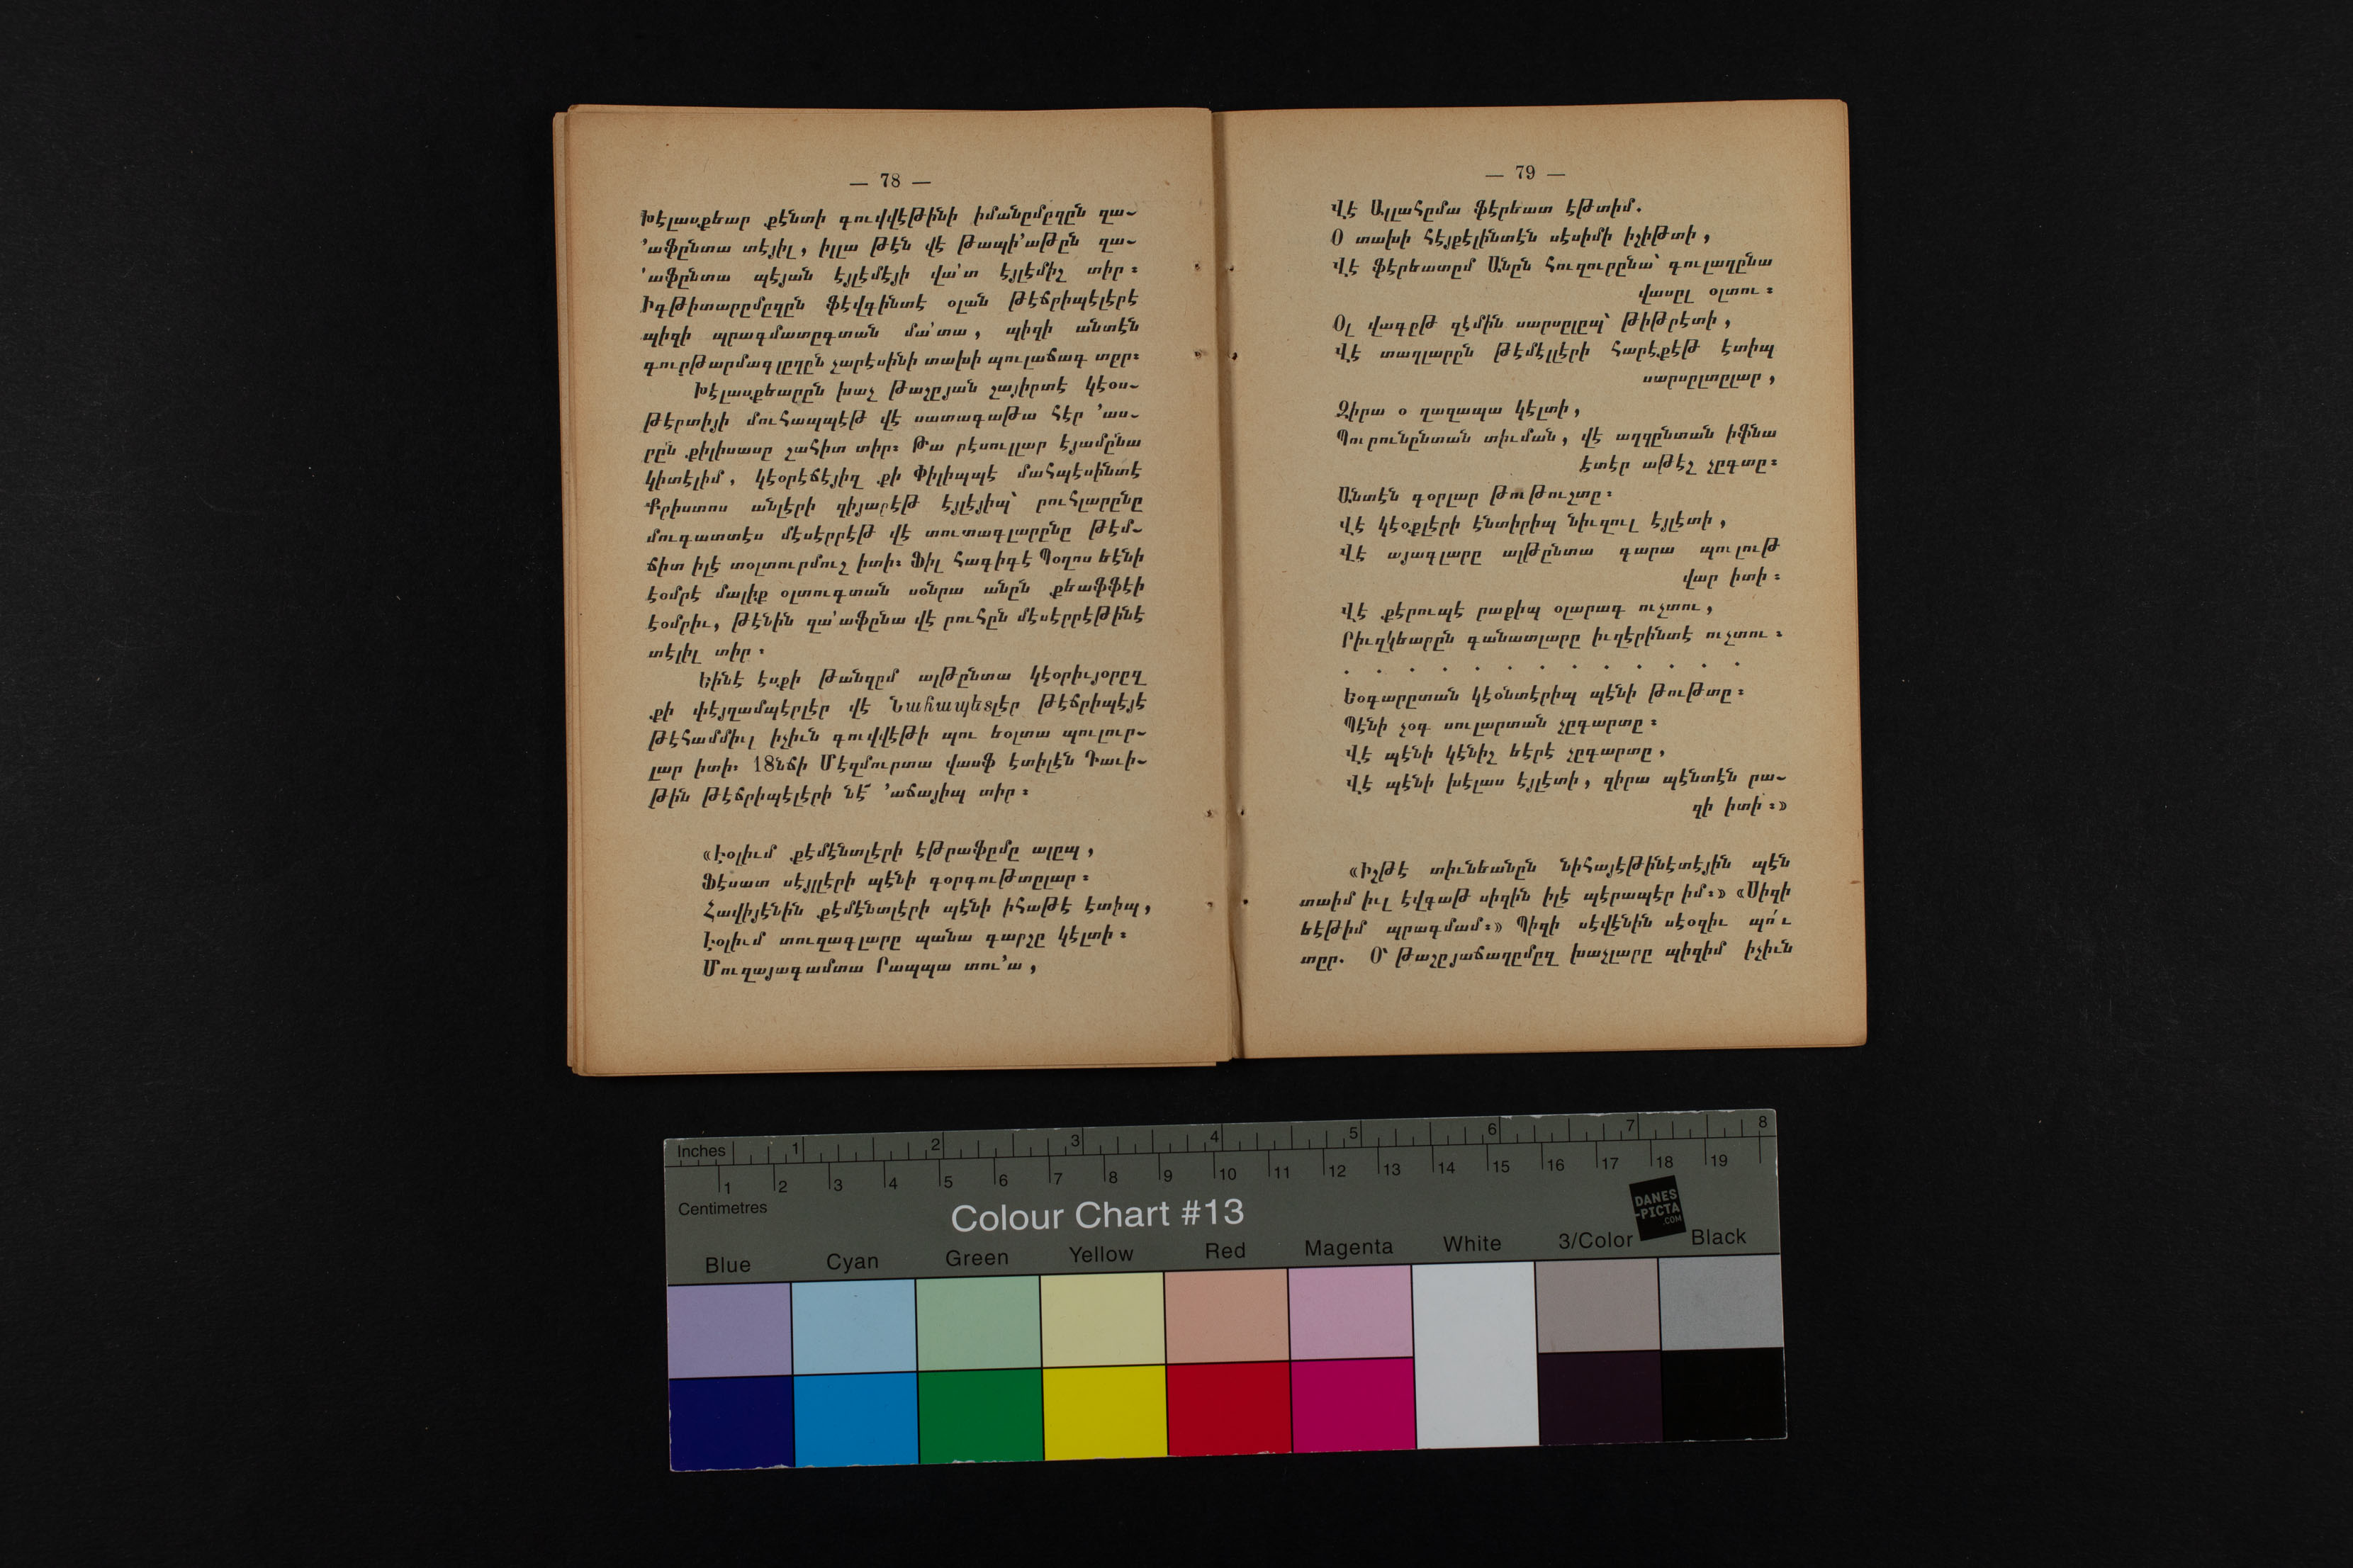 — 78 —
Խէլասքեար քէնտի գուվվէթինի իմանըմըզըն զա-
՚աֆընտա տէյիլ, իլլա թէն վէ թապի՚աթըն զա-
՚աֆընտա պէյան էյլէմէյի վա՚տ էյլէմիշ տիր։
Իգթիտարըմըզըն ֆէվգինտէ օլան թէճրիպէլէրէ
պիզի պրագմատըգտան մա՚տա, պիզի անտէն
գուրթարմագլըղըն չարէսինի տախի պուլաճագ տըր։
Խէլասքեարըն խաչ թաշըյան շայիրտէ կէօս-
թէրտիյի մուհապպէթ վէ սատագաթա հէր ՚աս-
րըն քիլիսասը շահիտ տիր։ Թա րէսուլլար էյամընա
կիտէլիմ, կէօրէճէյիզ քի Փիլիպպէ մահպէսինտէ
Քրիստոս անլէրի զիյարէթ էյլէյիպ՝ րուհլարընը
մուգատտէս մէսէրրէթ վէ տուտագլարընը թէմ-
ճիտ իլէ տօլտուրմուշ իտի։ Ֆիլ հագիգէ Պօղոս եէնի
էօմրէ մալիք օլտուգտան սօնրա անըն քեաֆֆէի
էօմրիւ, թէնին զա՚աֆընա վէ րուհըն մէսէրրէթինէ
տէլիլ տիր։
Եինէ էսքի թանզըմ ալթընտա կէօրիւյօրըզ
քի փէյղամպէրլէր վէ Նահապետլէր թէճրիպէյէ
թէհամմիւլ իչիւն գուվվէթի պու եօլտա պուլուր-
լար իտի. 18նճի Մէզմուրտա վասֆ էտիլէն Դաւի-
թին թէճրիպէլէրի նէ՜ ՚աճայիպ տիր։
«Էօլիւմ քէմէնտլէրի էթրաֆըմը ալըպ,
Ֆէսատ սէյլլէրի պէնի գօրգութտըլար։
Հավիյէնին քէմէնտլէրի պէնի իհաթէ էտիպ,
Էօլիւմ տուզագլարը պանա գարշը կէլտի։
Մուզայագամտա Րապպա տու՚ա,
— 79 —
Վէ Ալլահըմա ֆէրեատ էթտիմ.
Օ տախի հէյքէլինտէն սէսիմի իշիթտի,
Վէ ֆէրեատըմ Անըն հուզուրընա՝ գուլաղընա
վասըլ օլտու։
Օլ վագըթ զէմին սարսըլըպ՝ թիթրէտի,
Վէ տաղլարըն թէմէլլէրի հարէքէթ էտիպ
սարսըլտըլար,
Զիրա օ ղազապա կէլտի,
Պուրունընտան տիւման, վէ աղզընտան իֆնա
էտէր աթէշ չըգտը։
Անտէն գօրլար թութուշտը։
Վէ կէօքլէրի էնտիրիպ նիւզուլ էյլէտի,
Վէ այագլարը ալթընտա գարա պուլութ
վար իտի։
Վէ քէրուպէ րաքիպ օլարագ ուչտու,
Րիւզկեարըն գանատլարը իւզէրինտէ ուչտու։
. . . . . . . . . . . . .
Եօգարըտան կէօնտէրիպ պէնի թութտը։
Պէնի չօգ սուլարտան չըգարտը։
Վէ պէնի կէնիշ եէրէ չըգարտը,
Վէ պէնի խէլաս էյլէտի, զիրա պէնտէն րա-
զի իտի։»
«Իշթէ տիւնեանըն նիհայէթինէտէյին պէն
տաիմ իւլ էվգաթ սիզին իլէ պէրապէր իմ։» «Սիզի
եէթիմ պրագմամ։» Պիզի սէվէնին սէօզիւ պո՛ւ
տըր. Օ՝ թաշըյաճաղըմըզ խաչլարը պիզիմ իչիւն
Inches 1 2 3 4 5 6 7 8
1 2 3 4 5 6 7 8 9 10 11 12 13 14 15 16 17 18 19
Centimetres
Colour Chart #13
DANES
-PICTA
.COM
Blue Cyan Green Yellow Red Magenta White 3/Color Black